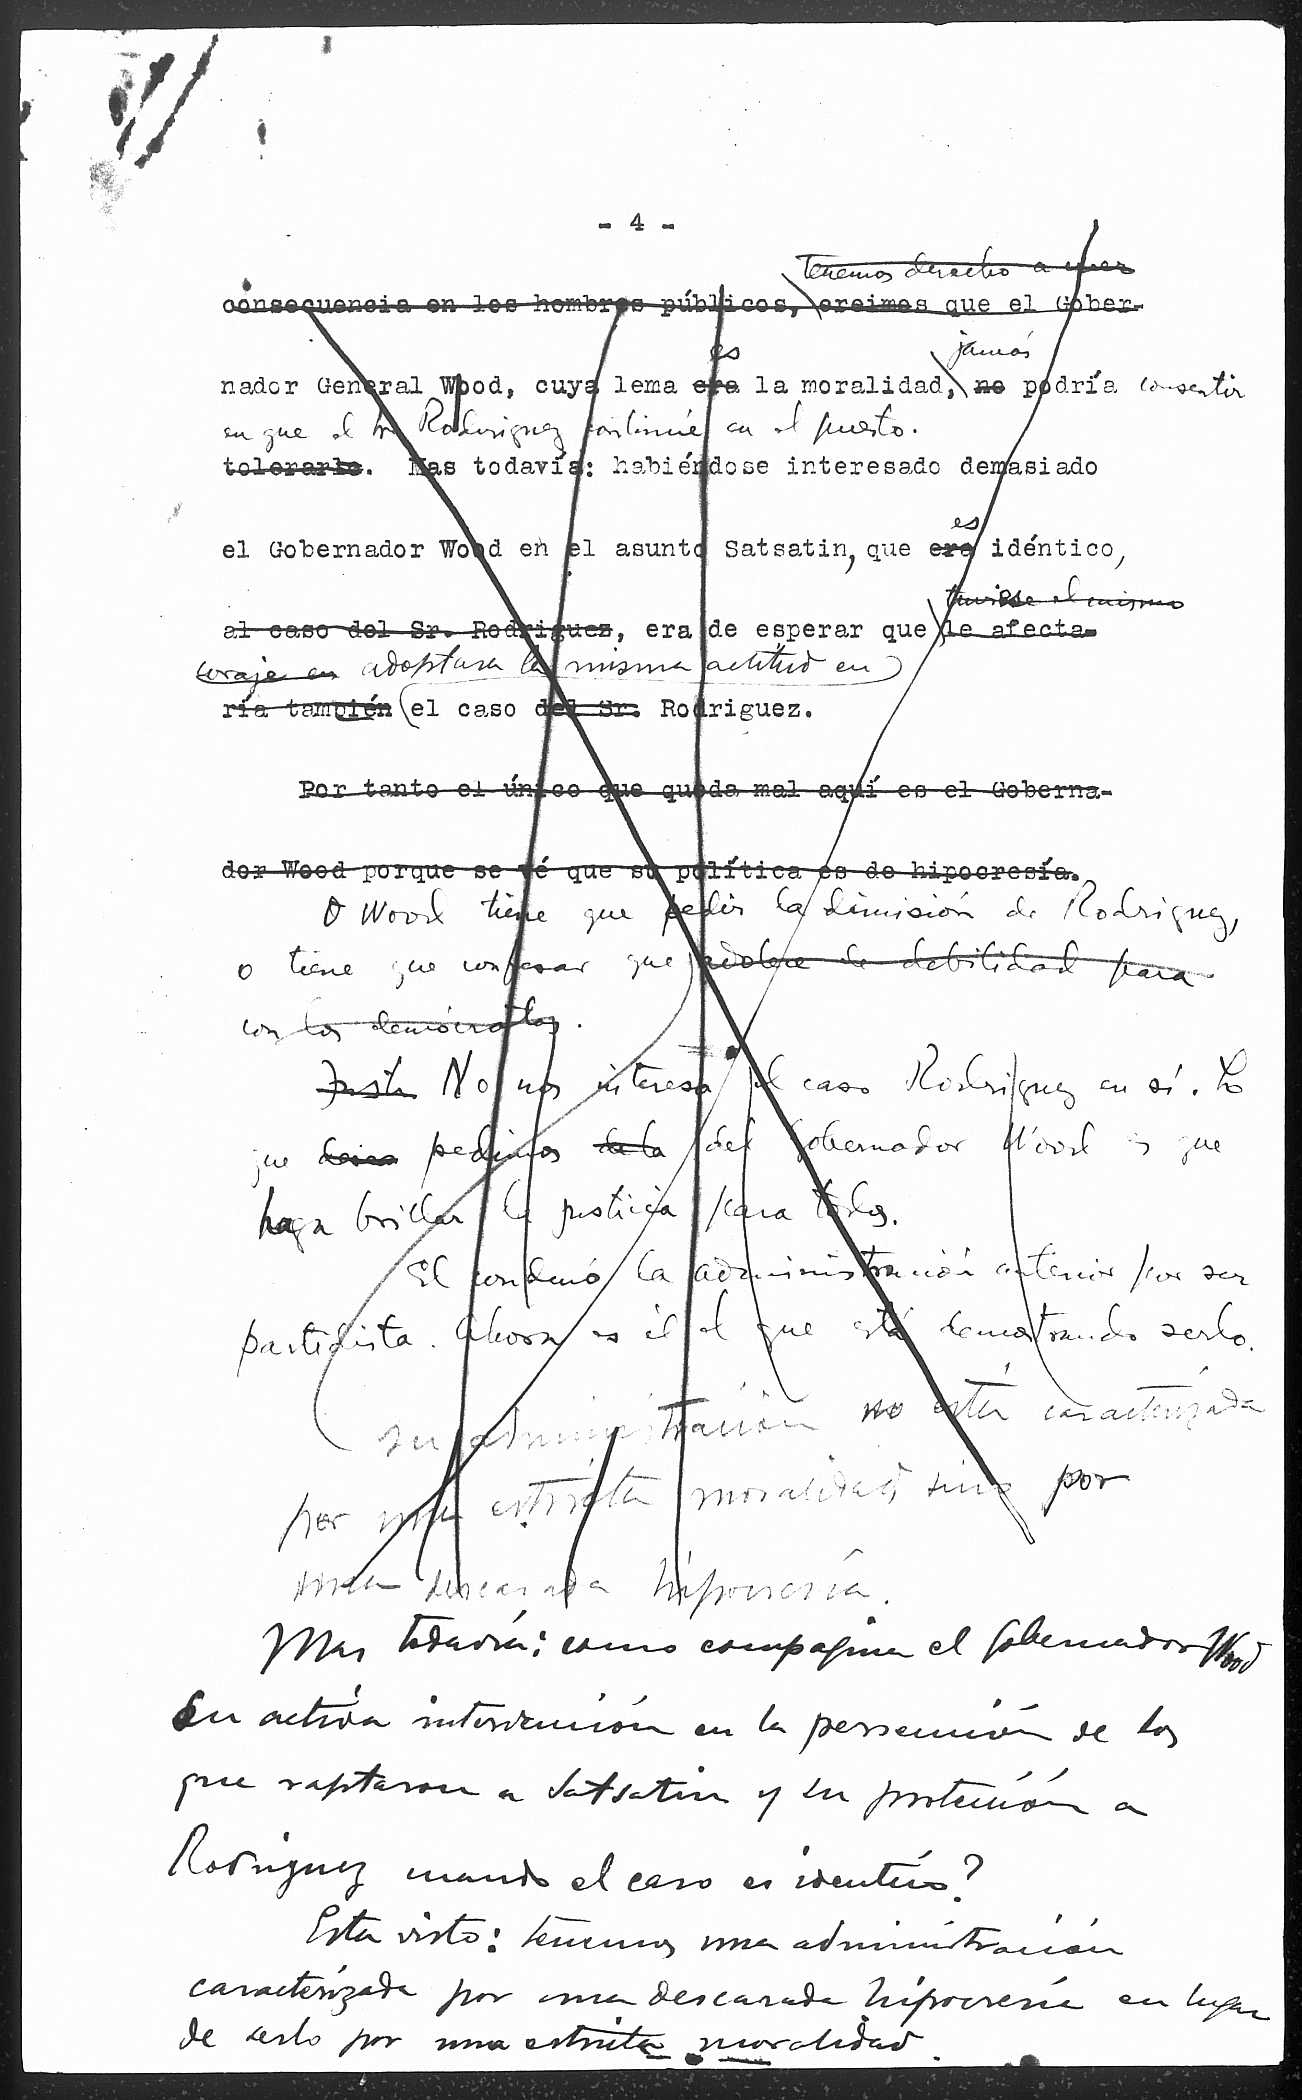 - 4 -
tenemos derecho a creer
consecuencia en los hombres públicos, creimos que el Gober-
es jamás
nador General Wood, cuya lema era la moralidad, no podría consentir
en que el Sr. Rodriguez continúe en el puesto.
tolerarlo. Mas todavía: habiéndose interesado demasiado
es
el Gobernador Wood en el asunto Satsatin, que era idéntico,
tuviese el mismo
al caso del Sr. Rodriguez, era de esperar que le afecta-
coraje en adoptara la misma actitud en
ría también el caso del Sr. Rodriguez.
Por tanto el único que queda mal aquí es el Goberna-
dor Wood porque se vé que su política es de hipocresía.
O Wood tiene que pedir la dimisión de Rodriguez,
o tiene que confesar que adolece de debilidad para
con los demócratas.
Justa No nos interesa el caso Rodriguez en sí. Lo
que pedimos de la del Gobernador Wood es que
haga brillar la justicia para todos.
El condenó la administración anterior por ser
partidista. Ahora es él el que está demostrando serlo.
su administración no está caracterizada
por una estricta moralidad sino por
una descarada hipocresía.
Mas todavía: como compagina el Gobernador Wood
su activa intervención en la persecución de los
que raptaron a Satsatin y su protección a
Rodriguez cuando el caso es identico?
Esta visto: tenemos una administración
caracterizada por una descarada hipocresía en lugar
de serlo por una estricta moralidad.